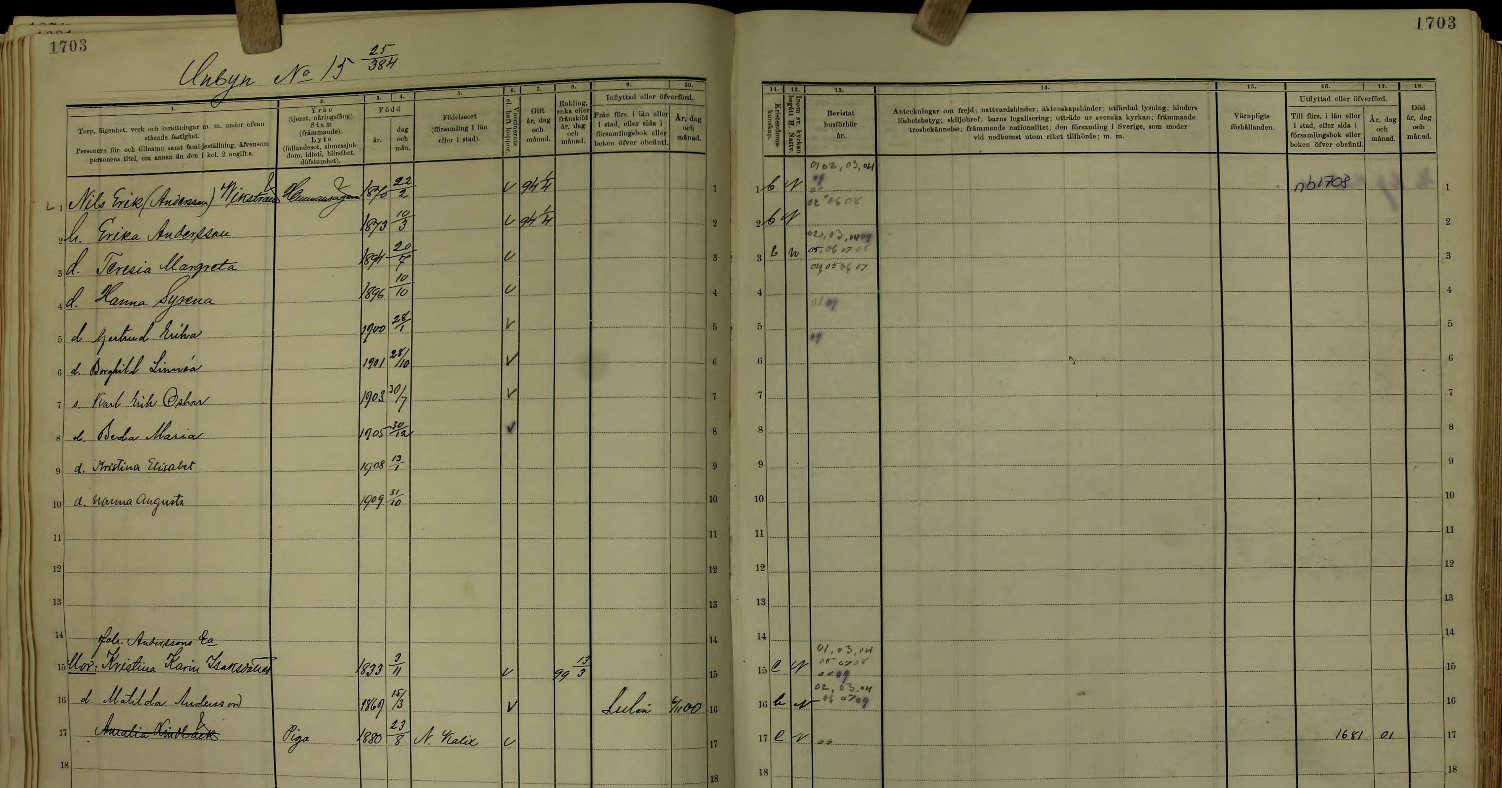 1703
1703
Unbyn No 15 25/384
1.
2.
3.
4.
5.
6.
7.
8.
9.
10.
Torp, lägenhet, verk och inrättningar m. m. under ofvan
stående fastighet.
Personers för- och tillnamn samt familjeställning, äfvensom
personens titel, om annan än den i kol. 2 angifna.
Yrke
(tjenst, näringsfång).
Stam
(främmande).
Lyte
(fallandesot, sinnessjuk-
dom, idioti, blindhet,
döfstumhet).
Född
år.
dag
och
mån.
Födelseort
(församling i län
eller i stad).
Gift
år, dag
och
månad.
Enkling,
enka eller
frånskild
år, dag
och
månad.
Inflyttad eller öfverförd.
Från förs. i län eller
i stad, eller sida i
församlingsbok eller
boken öfver obefintl.
År, dag
och
månad.
11.
12.
13.
14.
15.
16.
17.
18.
Kristendoms-
kunskap.
Inom sv. kyrkan
begått H. Nattv.
Bevistat
husförhör
år.
Anteckningar om frejd; nattvardshinder; äktenskapshinder; utfärdad lysning; hinders-
löshetsbetyg; skiljobref; barns legalisering; utträde ur svenska kyrkan; främmande
trosbekännelse; främmande nationalitet; den församling i Sverige, som moder
vid nedkomst utom riket tillhörde; m. m.
Värnpligts-
förhållanden.
Utflyttad eller öfverförd.
Till förs. i län eller
i stad, eller sida i
församlingsbok eller
boken öfver obefintl.
År, dag
och
månad.
Död
år, dag
och
månad.
1 Nils Erik (Andersson) Wikström Hemmansegare 1870 22/2 v 94 1/4 1
1 b N 01 02, 03, 04 nb 1708 1
2 h. Erika Andersson 1873 10/3 v 94 1/4 2
2 b N 02 06 08 2
3 d. Teresia Margreta 1894 v 3
3 b N 02, 03, 04 09 05 06 07 08 3
4 d. Hanna Syrena 1896 10/10 v 4
4 04 05 06 07 4
5 d Gertrud Erika 1900 28/1 v 5
5 5
6 d. Borghild Linnéa 1901 28/10 v 6
6 09 6
7 s. Karl Erik Oskar 1903 30/7 v 7
7 7
8 d. Beda Maria 1905 30/12 v 8
8 8
9 d. Kristina Elisabet 1908 13/1 9
9 9
10 d. Nanna Augusta 1909 31/10 10
10 10
11 11
11 11
12 12
12 12
13 13
13 13
14 Joh. Anderssons Ea 14
14 14
15 Mor. Kristina Karin Isaksdotter 1833 3/11 v 99 13/3 15
15 c N 01, 03, 04 15
16 d. Matilda Andersson 1869 15/3 v Luleå 00 16
16 b N 02, 03, 04 06 07 09 16
17 Amalia Piga 1880 23/8 N. Kalix v 17
17 c N 00 1681 01 17
18 18
18 18